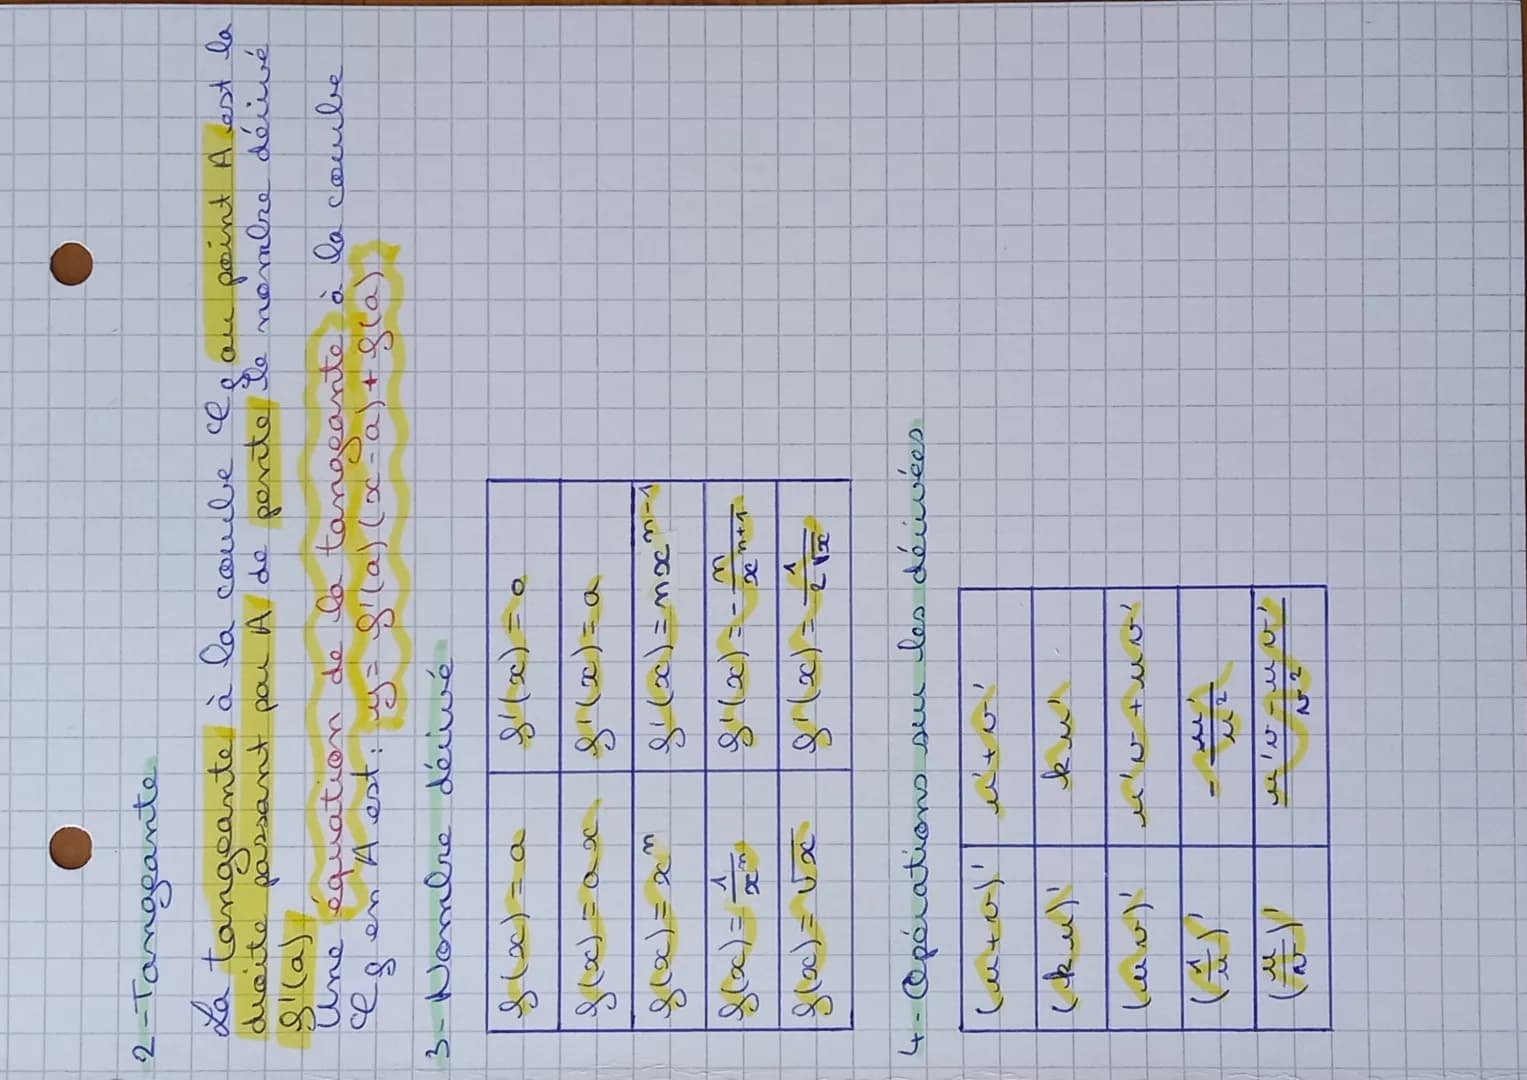 2-Tangeante
La tangeante à la courbe Cf au point A est la
droite passant par A de pente le nombre dérivé
f'(a)
Une équation de la tangeante à la courbe
Cf en A est : y = f'(a)(x-a) + f(a)
3- Nombre dérivé
f(x) = a f'(x) = 0
f(x) = ax f'(x) = a
f(x) = xⁿ f'(x) = nxⁿ⁻¹
f(x) = 1/xⁿ f'(x) = -n/xⁿ⁺¹
f(x) = √x f'(x) = 1/2√x
4- Opérations sur les dérivées
(u+v)' u'+v'
(ku)' ku'
(uv)' u'v + uv'
(1/u)' -u'/u²
(u/v)' u'v - uv'/v²